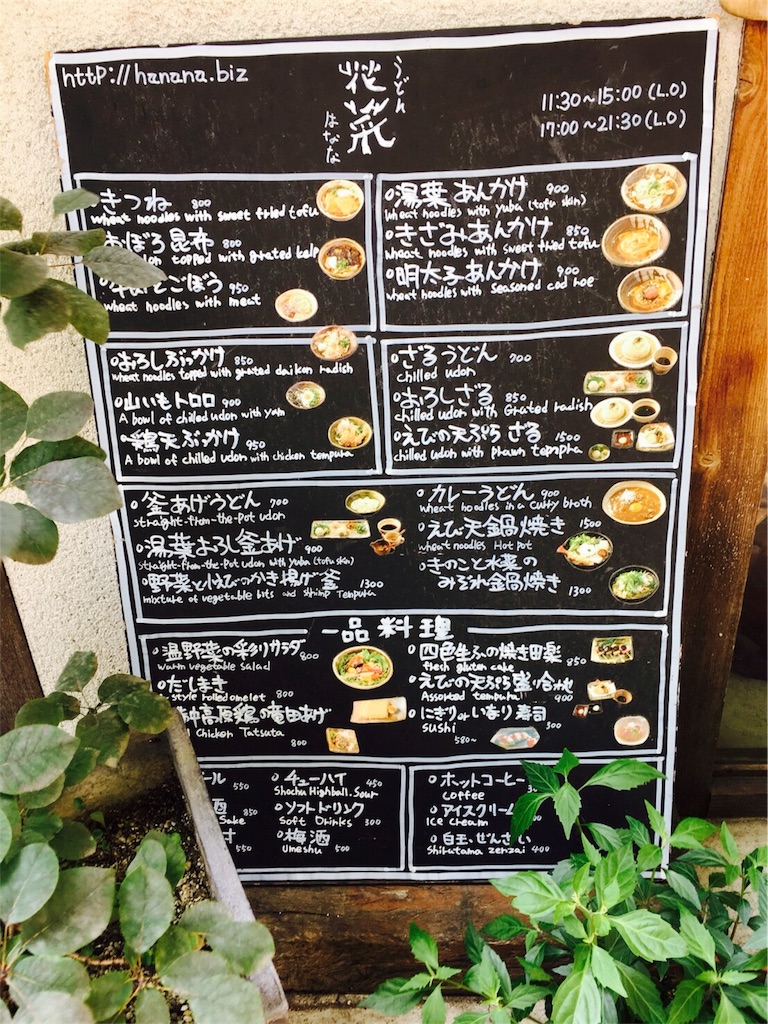 http://hanana.biz
うどん
花菜
はなな
11:30~15:00 (L.O)
17:00~21:30 (L.O)
きつね 800
wheat noodles with sweet fried tofu
おぼろ昆布 800
topped with grated kelp
ごぼう 950
wheat noodles with meat
湯葉あんかけ 900
wheat noodles with yuba (tofu skin)
きざみあんかけ 850
wheat noodles with sweet fried tofu
明太子あんかけ 900
wheat noodles with seasoned cod roe
おろしぶっかけ 850
wheat noodles topped with grated daikon radish
山いもトロロ 900
A bowl of chilled udon with yam
鶏天ぶっかけ 950
A bowl of chilled udon with chicken tempura
ざるうどん 700
chilled udon
おろしざる 850
chilled udon with Grated radish
えびの天ぷらざる 1500
chilled udon with prawn tempura
釜あげうどん 700
straight-from-the-pot udon
湯葉おろし釜あげ 900
straight-from-the-pot udon with yuba (tofu skin)
野菜と小えびのかき揚げ釜 1300
mixture of vegetable bits and shrimp Tempura
カレーうどん 900
wheat noodles in a curry broth
えび天鍋焼き 1500
wheat noodles Hot Pot
きのこと水菜の
みぞれ鍋焼き 1300
一品料理
温野菜の彩りサラダ 800
warm vegetable salad
だしまき
style rolled omelet 800
高原鶏の竜田あげ
Chicken Tatsuta
800
四色生ふの焼き田楽 850
fresh gluten cake
えびの天ぷら盛り合わせ 900
Assorted tempura
にぎり or いなり寿司 300
sushi
580~
ール 550
酒 850
Sake
550
チューハイ 450
Shochu Highball. Sour
ソフトドリンク 300
Soft Drinks
梅酒
Umeshu 500
ホットコーヒー
coffee
アイスクリーム
Ice cream
白玉ぜんざい
Shiratama zenzai 400